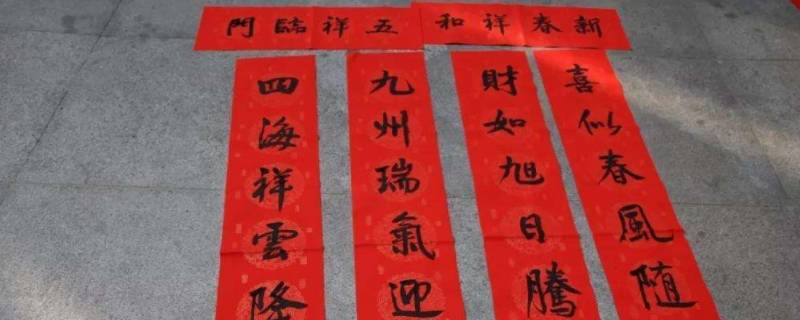 新春祥和
五祥臨門
喜似春風随
財如旭日騰
九州瑞氣迎
四海祥雲降